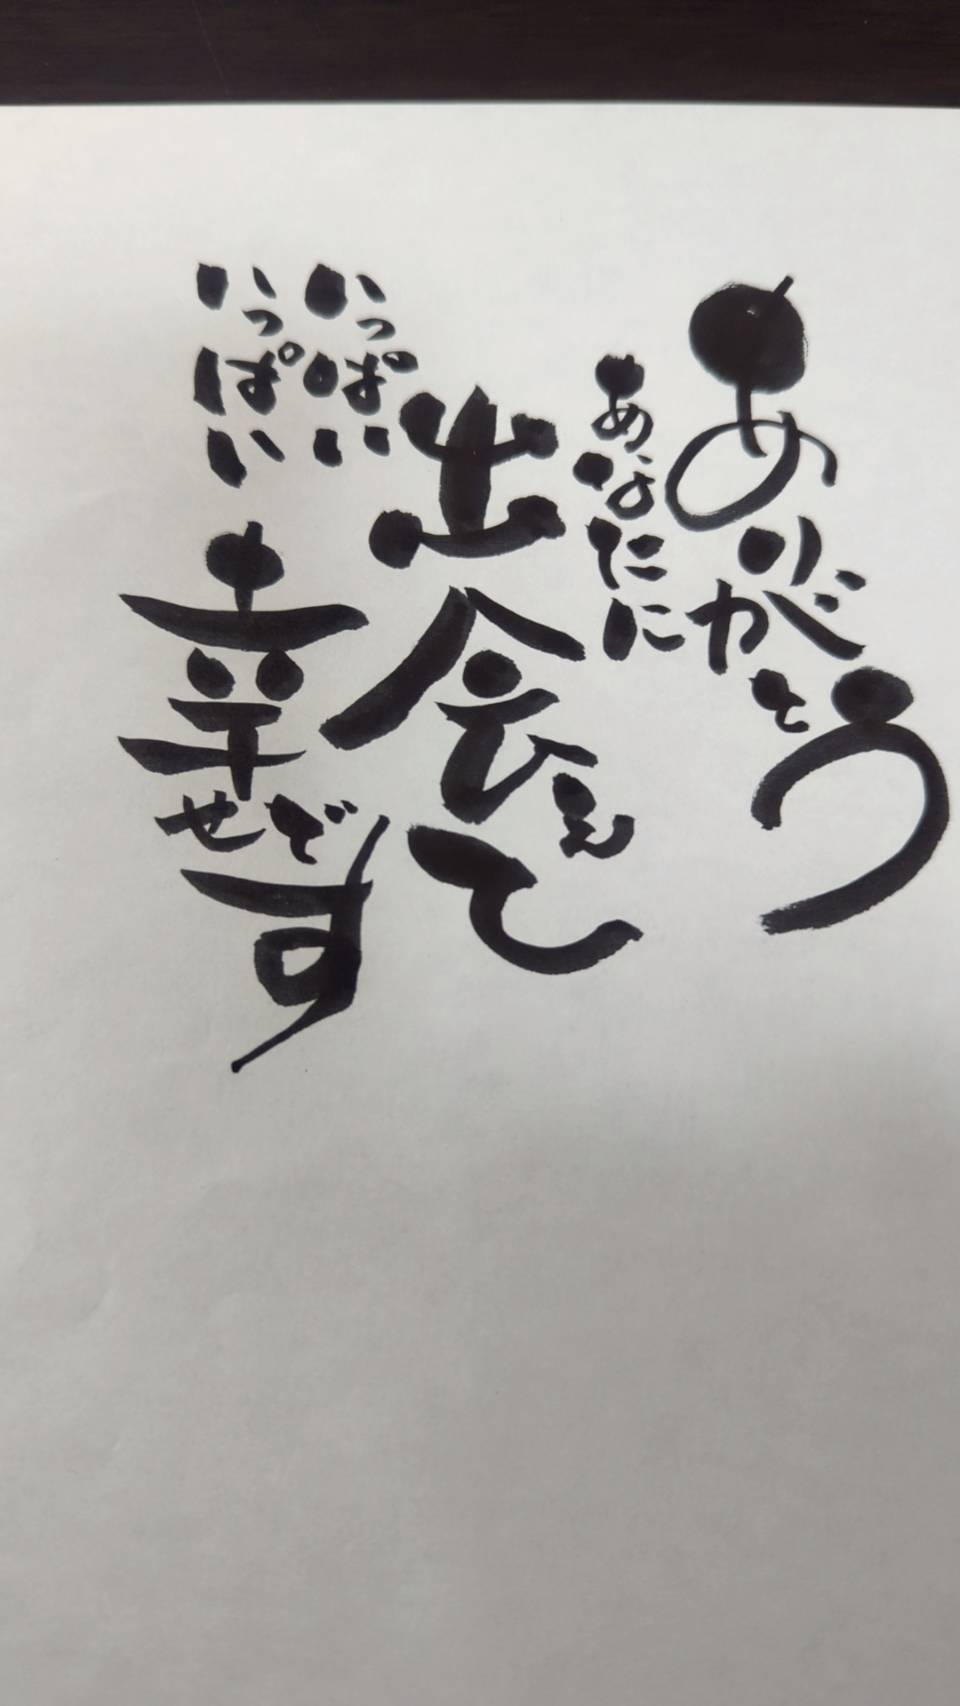 ありがとう
あなたに
出会えて
いっぱい
いっぱい
幸せです